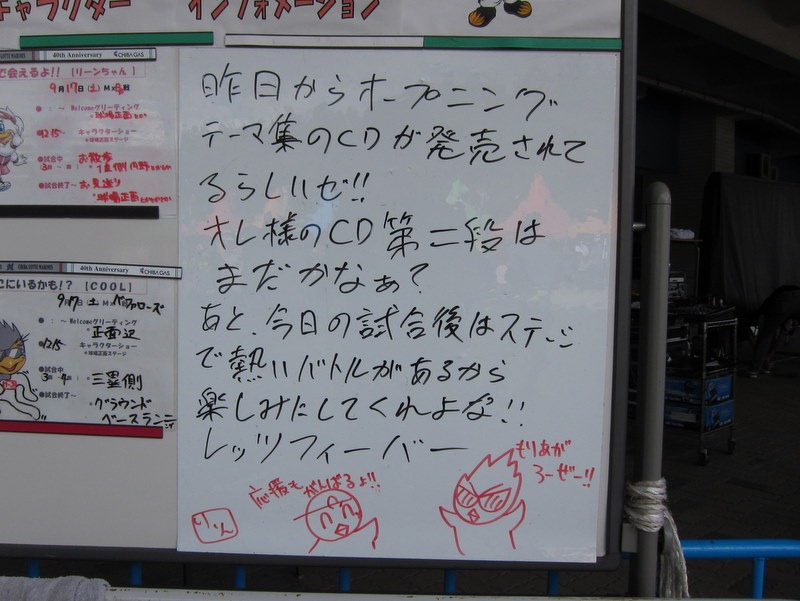 キャラクター インフォメーション
40th Anniversary CHIBA GAS
で会えるよ!! [リーンちゃん]
9月17日(土)M×
● : ~ Welcomeグリーティング
*球場正面
●12:15~ キャラクターショー
*球場正面ステージ
●試合中 お散歩
●試合終了~ お見送り
*球場正面
CHIBA LOTTE MARINES 40th Anniversary CHIBA GAS
こにいるかも!? [COOL]
9月17日(土)M×バファローズ
● : ~ Welcomeグリーティング
*正面
●12:15~ キャラクターショー
*球場正面ステージ
●試合中 三塁側
●試合終了~ グラウンド
ベースランニ
昨日からオープニング
テーマ集のCDが発売されて
るらしいぜ!!
オレ様のCD第二段は
まだかなぁ?
あと、今日の試合後はステージ
で熱いバトルがあるから
楽しみにしてくれよな!!
レッツフィーバー
応援もがんばるよ!!
もりあが
ろーぜー!!
りん